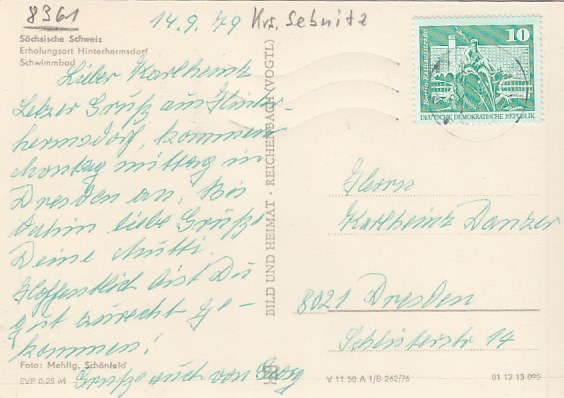 8361
14.9.79 Krs. Sebnitz
Sächsische Schweiz
Erholungsort Hinterhermsdorf
Schwimmbad
Lieber Karlheinz
Letzer Gruß aus Hinter-
hermsdorf, kommen
Montag mittag in
Dresden an. Bis
dahin liebe Grüße
Deine Mutti.
Hoffentlich bist Du
gut zurecht ge-
kommen!
Grüße auch von Georg
Foto: Mehlig, Schönfeld
EVP 0,25 M
BILD UND HEIMAT · REICHENBACH (VOGTL)
10
Berlin, Rathausstraße
DEUTSCHE DEMOKRATISCHE REPUBLIK
Herrn
Karlheinz Danzer
8021 Dresden
Schlüterstr 14
V 11 50 A 1/B 262/76
01 12 13 095